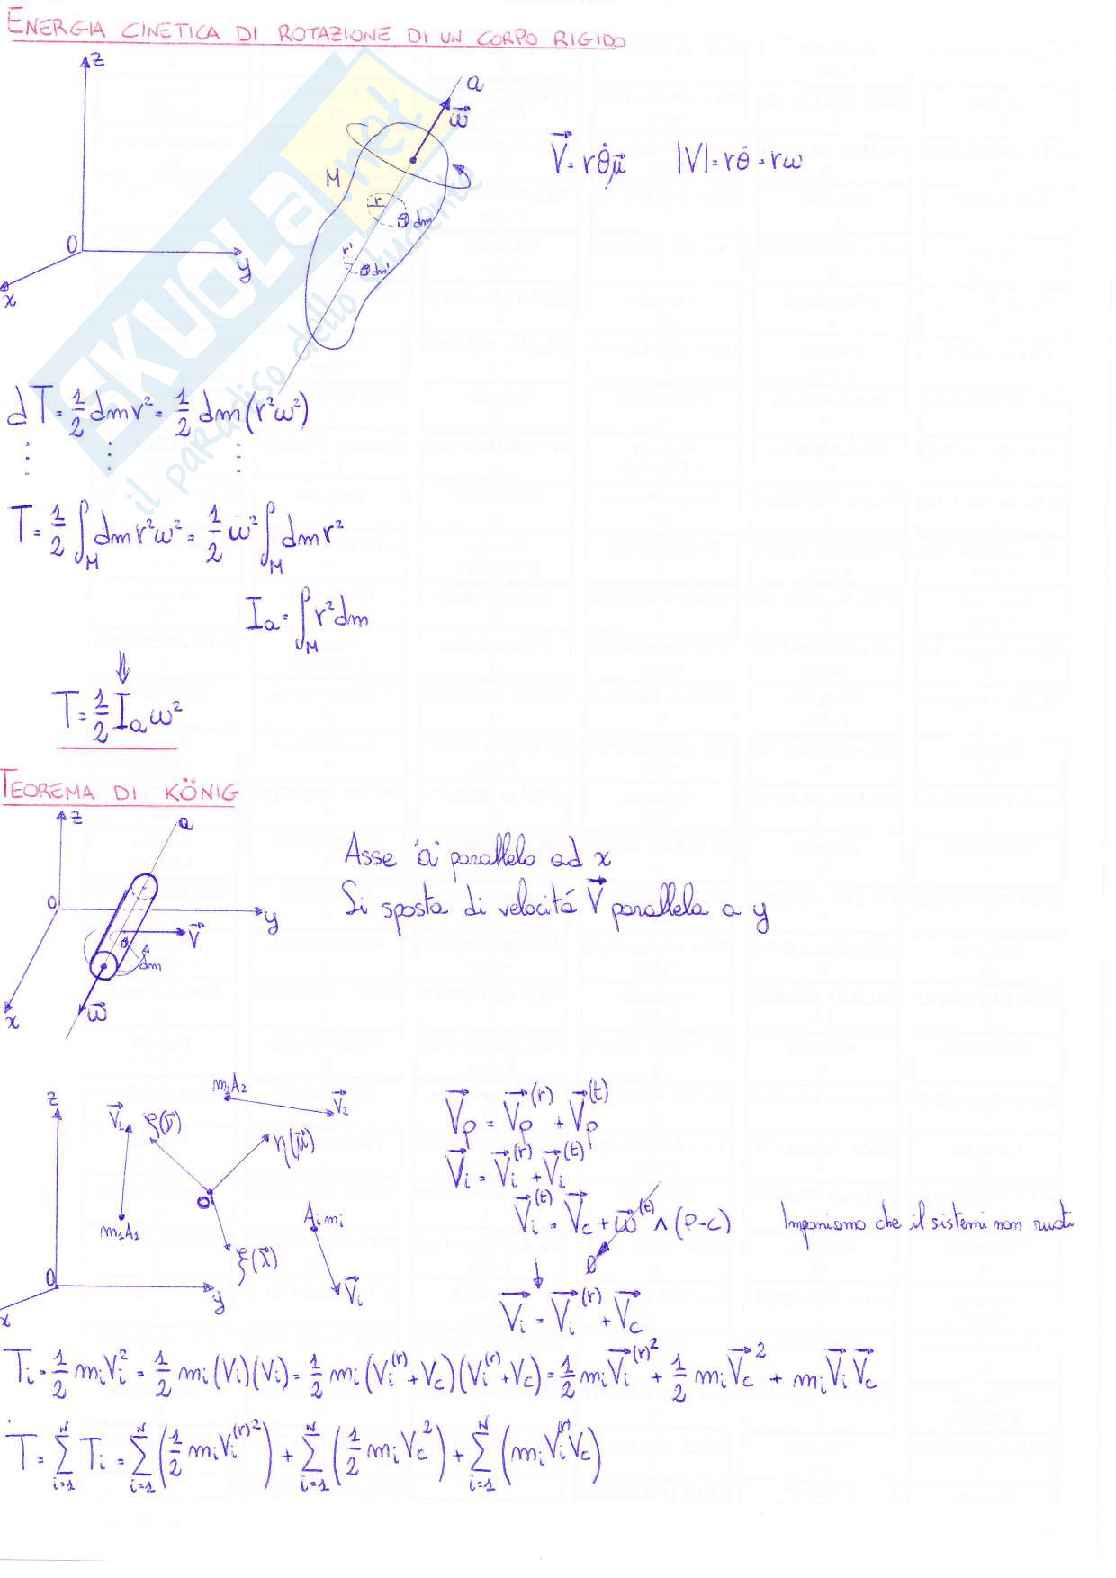 ENERGIA CINETICA DI ROTAZIONE DI UN CORPO RIGIDO
z
a
ω⃗
V⃗ = rθ̇μ⃗   |V| = rθ̇ = rω
M
r
dm
O
y
r'
dm'
x
SKUOLA.net
il paradiso dello studente
dT = 1/2 dmr² = 1/2 dm(r²ω²)
⋮ ⋮ ⋮
T = 1/2 ∫_M dm r²ω² = 1/2 ω² ∫_M dm r²
I_a = ∫_M r²dm
⇓
T = 1/2 I_a ω²
TEOREMA DI KÖNIG
z
a
Asse 'a' parallelo ad x
O
y
Si sposta di velocitá V⃗ parallela a y
V⃗
dm
x
ω⃗
z
m₂A₂
V⃗₂
V⃗₁
η(μ⃗)
m₁A₁
O'
A_i m_i
ξ(λ⃗)
V⃗_i
O
y
x
V⃗_p = V⃗_p^(r) + V⃗_p^(t)
V⃗_i = V⃗_i^(r) + V⃗_i^(t)
V⃗_i^(t) = V⃗_c + ω⃗^(t) ∧ (P-C)   Imponiamo che il sistemi non ruoti
0
V⃗_i = V⃗_i^(r) + V⃗_c
T_i = 1/2 m_i V_i² = 1/2 m_i (V_i)(V_i) = 1/2 m_i (V_i^(r) + V_c)(V_i^(r) + V_c) = 1/2 m_i V⃗_i^(r)² + 1/2 m_i V⃗_c² + m_i V⃗_i V⃗_c
T = Σ_{i=1}^N T_i = Σ_{i=1}^N (1/2 m_i V_i^(r)²) + Σ_{i=1}^N (1/2 m_i V_c²) + Σ_{i=1}^N (m_i V_i^(r) V_c)